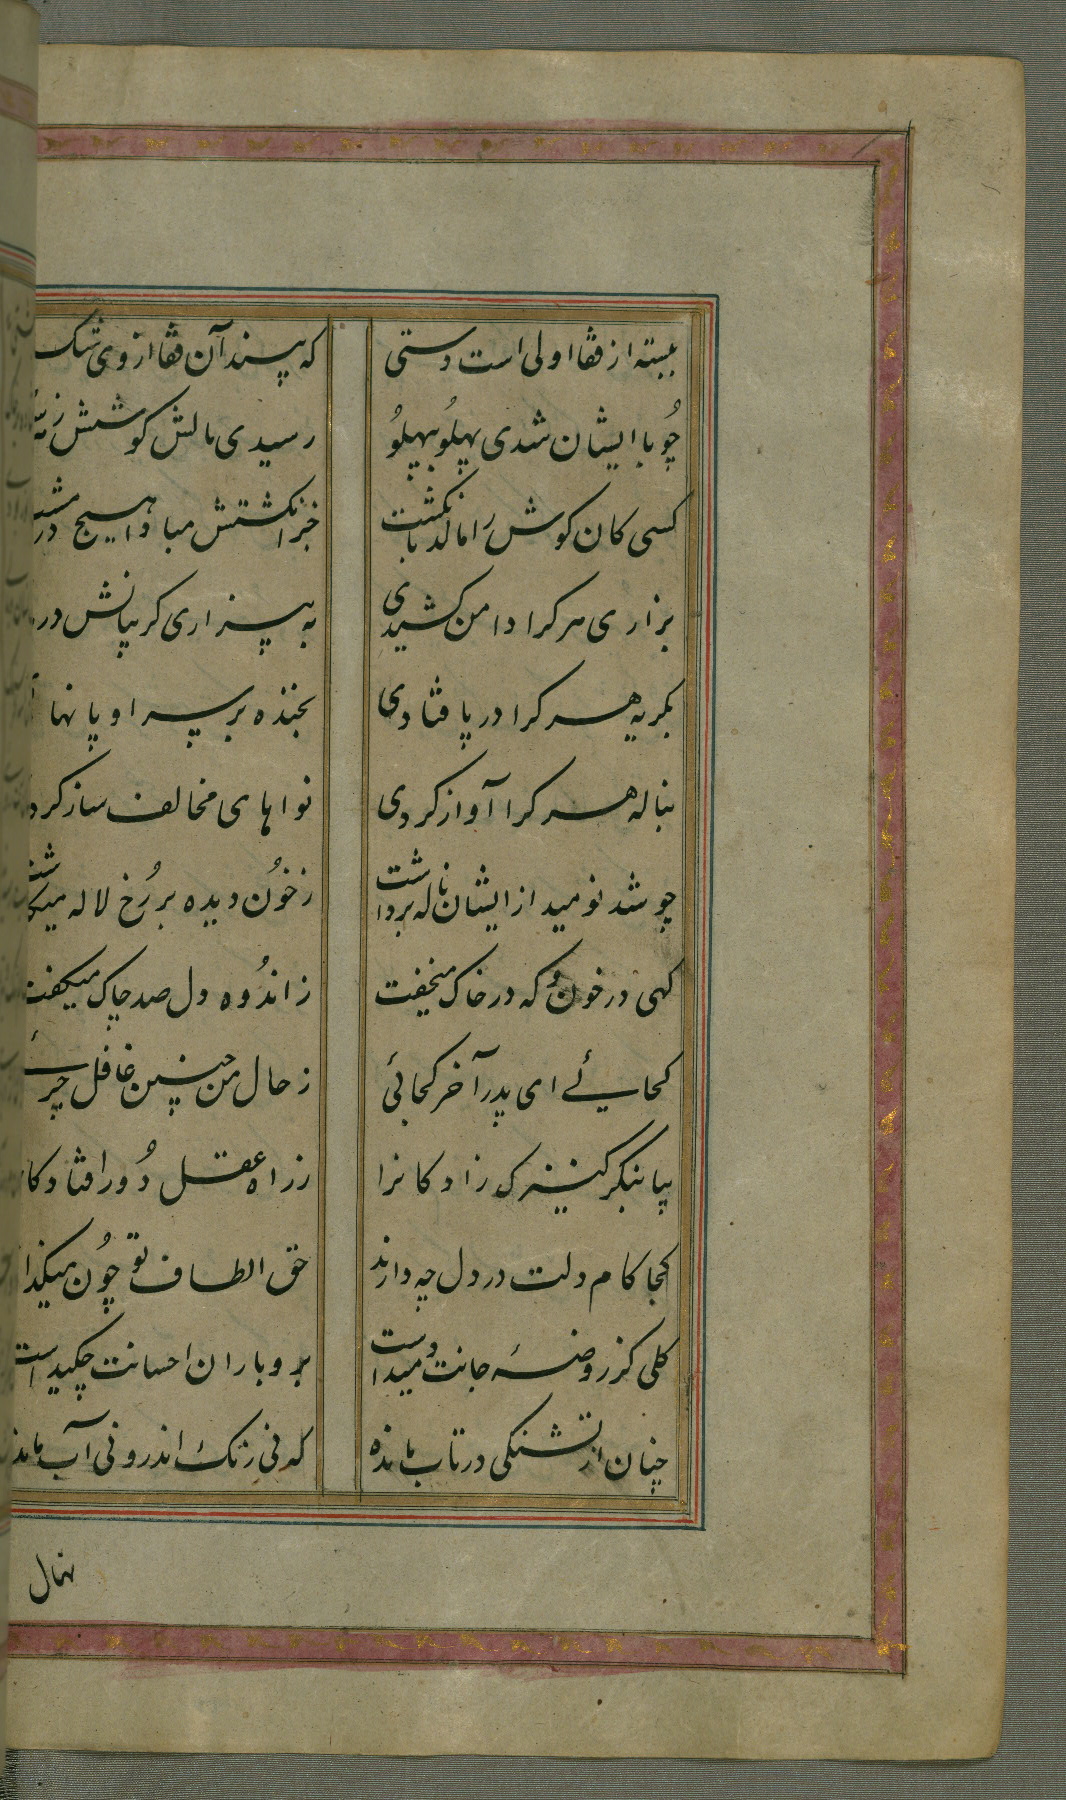 ببسته از قفا اولی است دستی که بیند آن قفا از وی
چو با ایشان شدی پهلو بپهلو رسیدی مالش کوشش
کسی کان کوش را مالد بانکشت جز انکشتش مبادا هیچ در مشت
بزاری هر کرا دامن کشیدی به بیزاری کریبانش
بکریه هر کرا در پا فتادی بخنده بر سر او پا
بناله هر کرا آواز کردی نواهای مخالف ساز
چو شد نومید از ایشان ناله برداشت ز خون دیده بر رخ لاله
کهی در خون و که در خاک میخفت ز اندوه دل صد چاک میکفت
کجائے ای پدر آخر کجائی ز حال من چنین غافل چرائے
بیا بنکر کنیزک زادکانرا ز راه عقل دور
کجا کام دلت در دل چه دارند حق الطاف تو چون
کلی کز روضهٔ جانت دمیداست برو باران احسانت چکیداست
چنان از تشنکی در تاب مانده که نی رنک اندرو نی آب
نهال